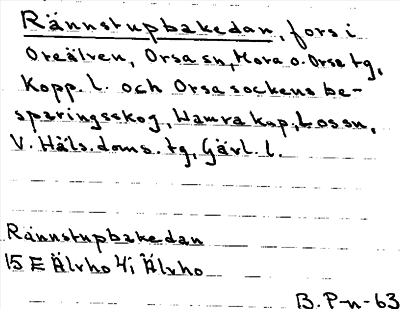 Rännstupbakedan, fors i
Oreälven, Orsa sn, Mora o. Orsa tg,
Kopp. l. och Orsa sockens be-
sparingsskog, Hamra kap., Los sn,
V. Häls. doms. tg, Gävl. l.
Rännstupbakedan
15 E Älvho 4i Älvho
B. P-n-63